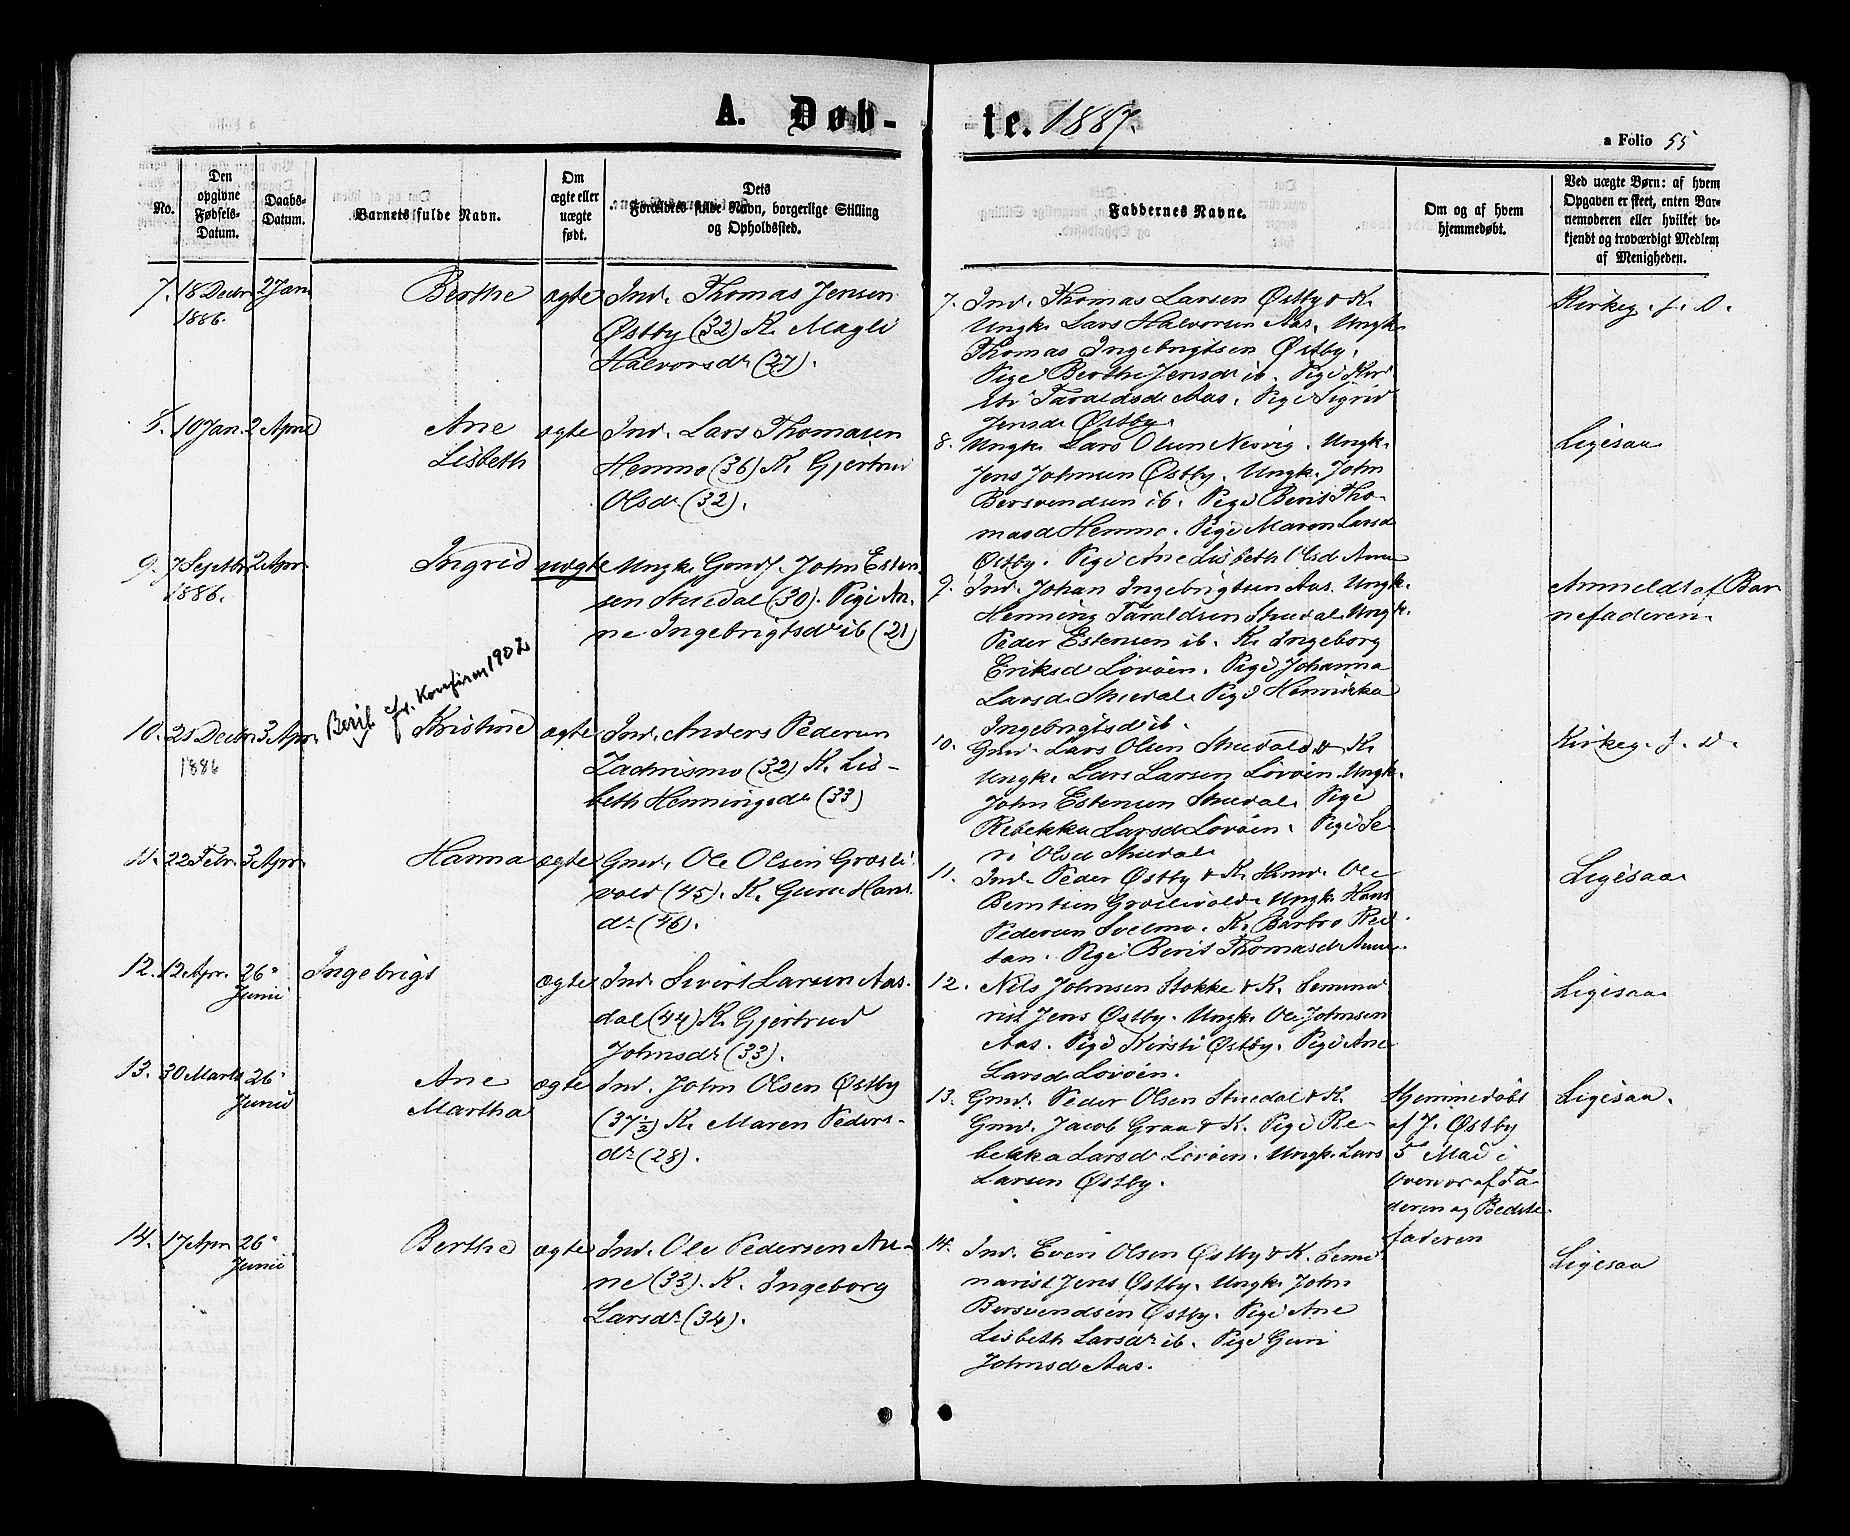 A. Døb-
te. 1887.
a Folio 55
No.
Den
opgivne
Fødsels-
Datum.
Daabs-
Datum.
Barnets fulde Navn.
Om
ægte eller
uægte
født.
Dets
Forældres fulde Navn, borgerlige Stilling
og Opholdssted.
Faddernes Navne.
Om og af hvem
hjemmedøbt.
Ved uægte Børn: af hvem
Opgaven er skeet, enten Bar-
nemoderen eller hvilket be-
kjendt og troværdigt Medlem
af Menigheden.
7. 18 Decbr 2 Jan. Berthe ægte Ind. Thomas Jensen
1886.
Østby (32) K. Magli
Halvorsdr (27).
7. Ind. Thomas Larsen Østby & K.
Ungk. Lars Halvorsen Aas. Ungk.
Thomas Ingebrigtsen Østby.
Pige Berthe Jensd ib. Pige Kir-
sti Taraldsd Aas. Pige Sigrid
Jensd Østby.
Kirkeg. f. D.
8. 10 Jan. 2 April Ane ægte Ind. Lars Thomasen
Lisbeth Hemmo (36) K. Gjertrud
Olsdr (32).
8. Ungk. Lars Olsen Nervig. Ungk.
Jens Johnsen Østby. Ungk. John
Bersvendsen ib. Pige Berit Tho-
masd Hemmo. Pige Maren Larsd
Østby. Pige Ane Lisbeth Olsd Aune
Ligesaa
9. 7 Septbr 2 Apr. Ingrid uægte Ungk. Gmdf. John Esten-
1886.
sen Stuedal (30). Pige An-
ne Ingebrigtsdr ib (21)
9. Ind. Johan Ingebrigtsen Aas. Ungk.
Henning Taraldsen Stuedal. Ungk.
Peder Estensen ib. K. Ingeborg
Eriksd Løvøen. Pige Johanna
Larsd Stuedal. Pige Henrikka
Ingebrigtsd ib.
Anmeldt af Bar
nefaderen.
10. 21 Decbr 3 Apr. Berit cfr. Konfirm 1902 Kristine ægte Ind. Anders Pedersen
1886
Zachrismo (32) K. Lis-
beth Henningsdr (33)
10. Gmd. Lars Olsen Stuedal & K.
Ungk. Lars Larsen Løvøen. Ungk.
John Estensen Stuedal. Pige
Rebekka Larsd Løvøen. Pige Se-
ri Olsd Stuedal
Kirkeg. f. D.
11. 22 Febr. 3 Apr. Hanna ægte Gmd. Ole Olsen Græsli-
vold (45). K. Guru Hans
dr (46).
11. Ind. Peder Østby & K. Hmd. Ole
Berntsen Græslivold. Ungk. Hans
Pedersen Svelmo. K. Barbro Rei-
tan. Pige Berit Thomasd Aune.
Ligesaa
12. 12 Apr. 26. Ingebrigt ægte Ind. Sivert Larsen Aas-
Junii
dal (44) K. Gjertrud
Johnsdr (33).
12. Nils Johnsen Stokke & K. Semina
rist Jens Østby. Ungk. Ole Johnsen
Aas. Pige Kirsti Østby. Pige Ane
Larsd Løvøen.
Ligesaa
13. 30 Marts 26. Ane ægte Ind. John Olsen Østby
Junii Martha
(37 1/2) K. Maren Peders-
dr (28).
13. Gmd. Peder Olsen Stuedal & K.
Gmd. Jacob Graa & K. Pige Re-
bekka Larsd Løvøen. Ungk. Lars
Larsen Østby.
Hjemmedøbt
af J. Østby
5 Mai i
Overvær af Fa
deren og Bedste-
faderen
Ligesaa.
14. 17 Apr. 26. Berthe ægte Ind. Ole Pedersen Au-
Junii
ne (33). K. Ingeborg
Larsdr (34).
14. Ind. Even Olsen Østby & K. Semi
narist Jens Østby. Ungk. John
Bersvendsen Østby. Pige Ane
Lisbeth Larsdr ib. Pige Guri
Johnsd Aas.
Ligesaa